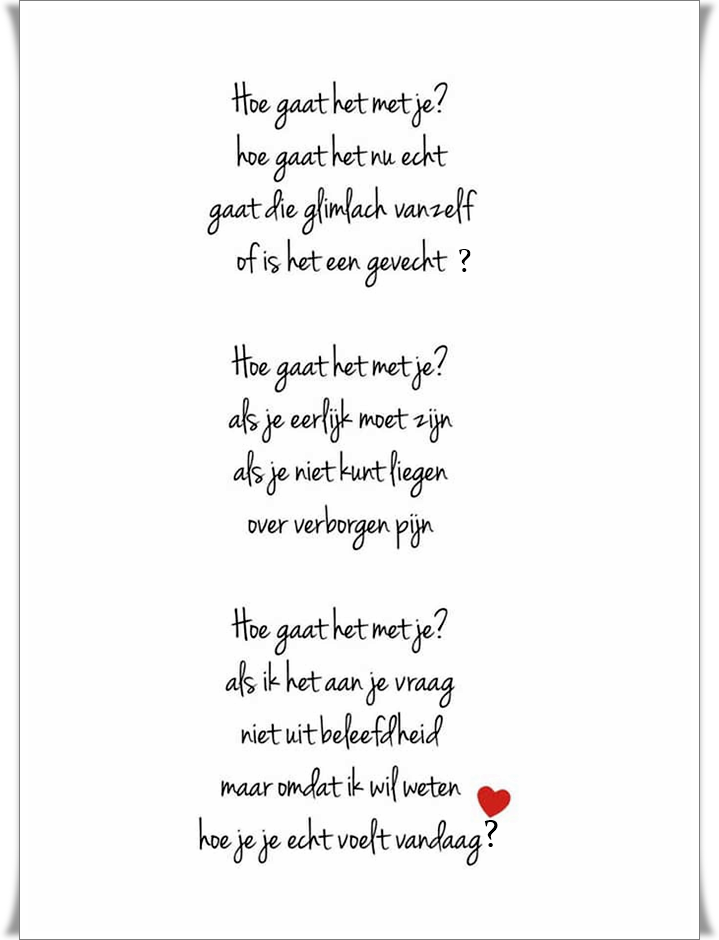 Hoe gaat het met je?
hoe gaat het nu echt
gaat die glimlach vanzelf
of is het een gevecht ?
Hoe gaat het met je?
als je eerlijk moet zijn
als je niet kunt liegen
over verborgen pijn
Hoe gaat het met je?
als ik het aan je vraag
niet uit beleefdheid
maar omdat ik wil weten
hoe je je echt voelt vandaag?